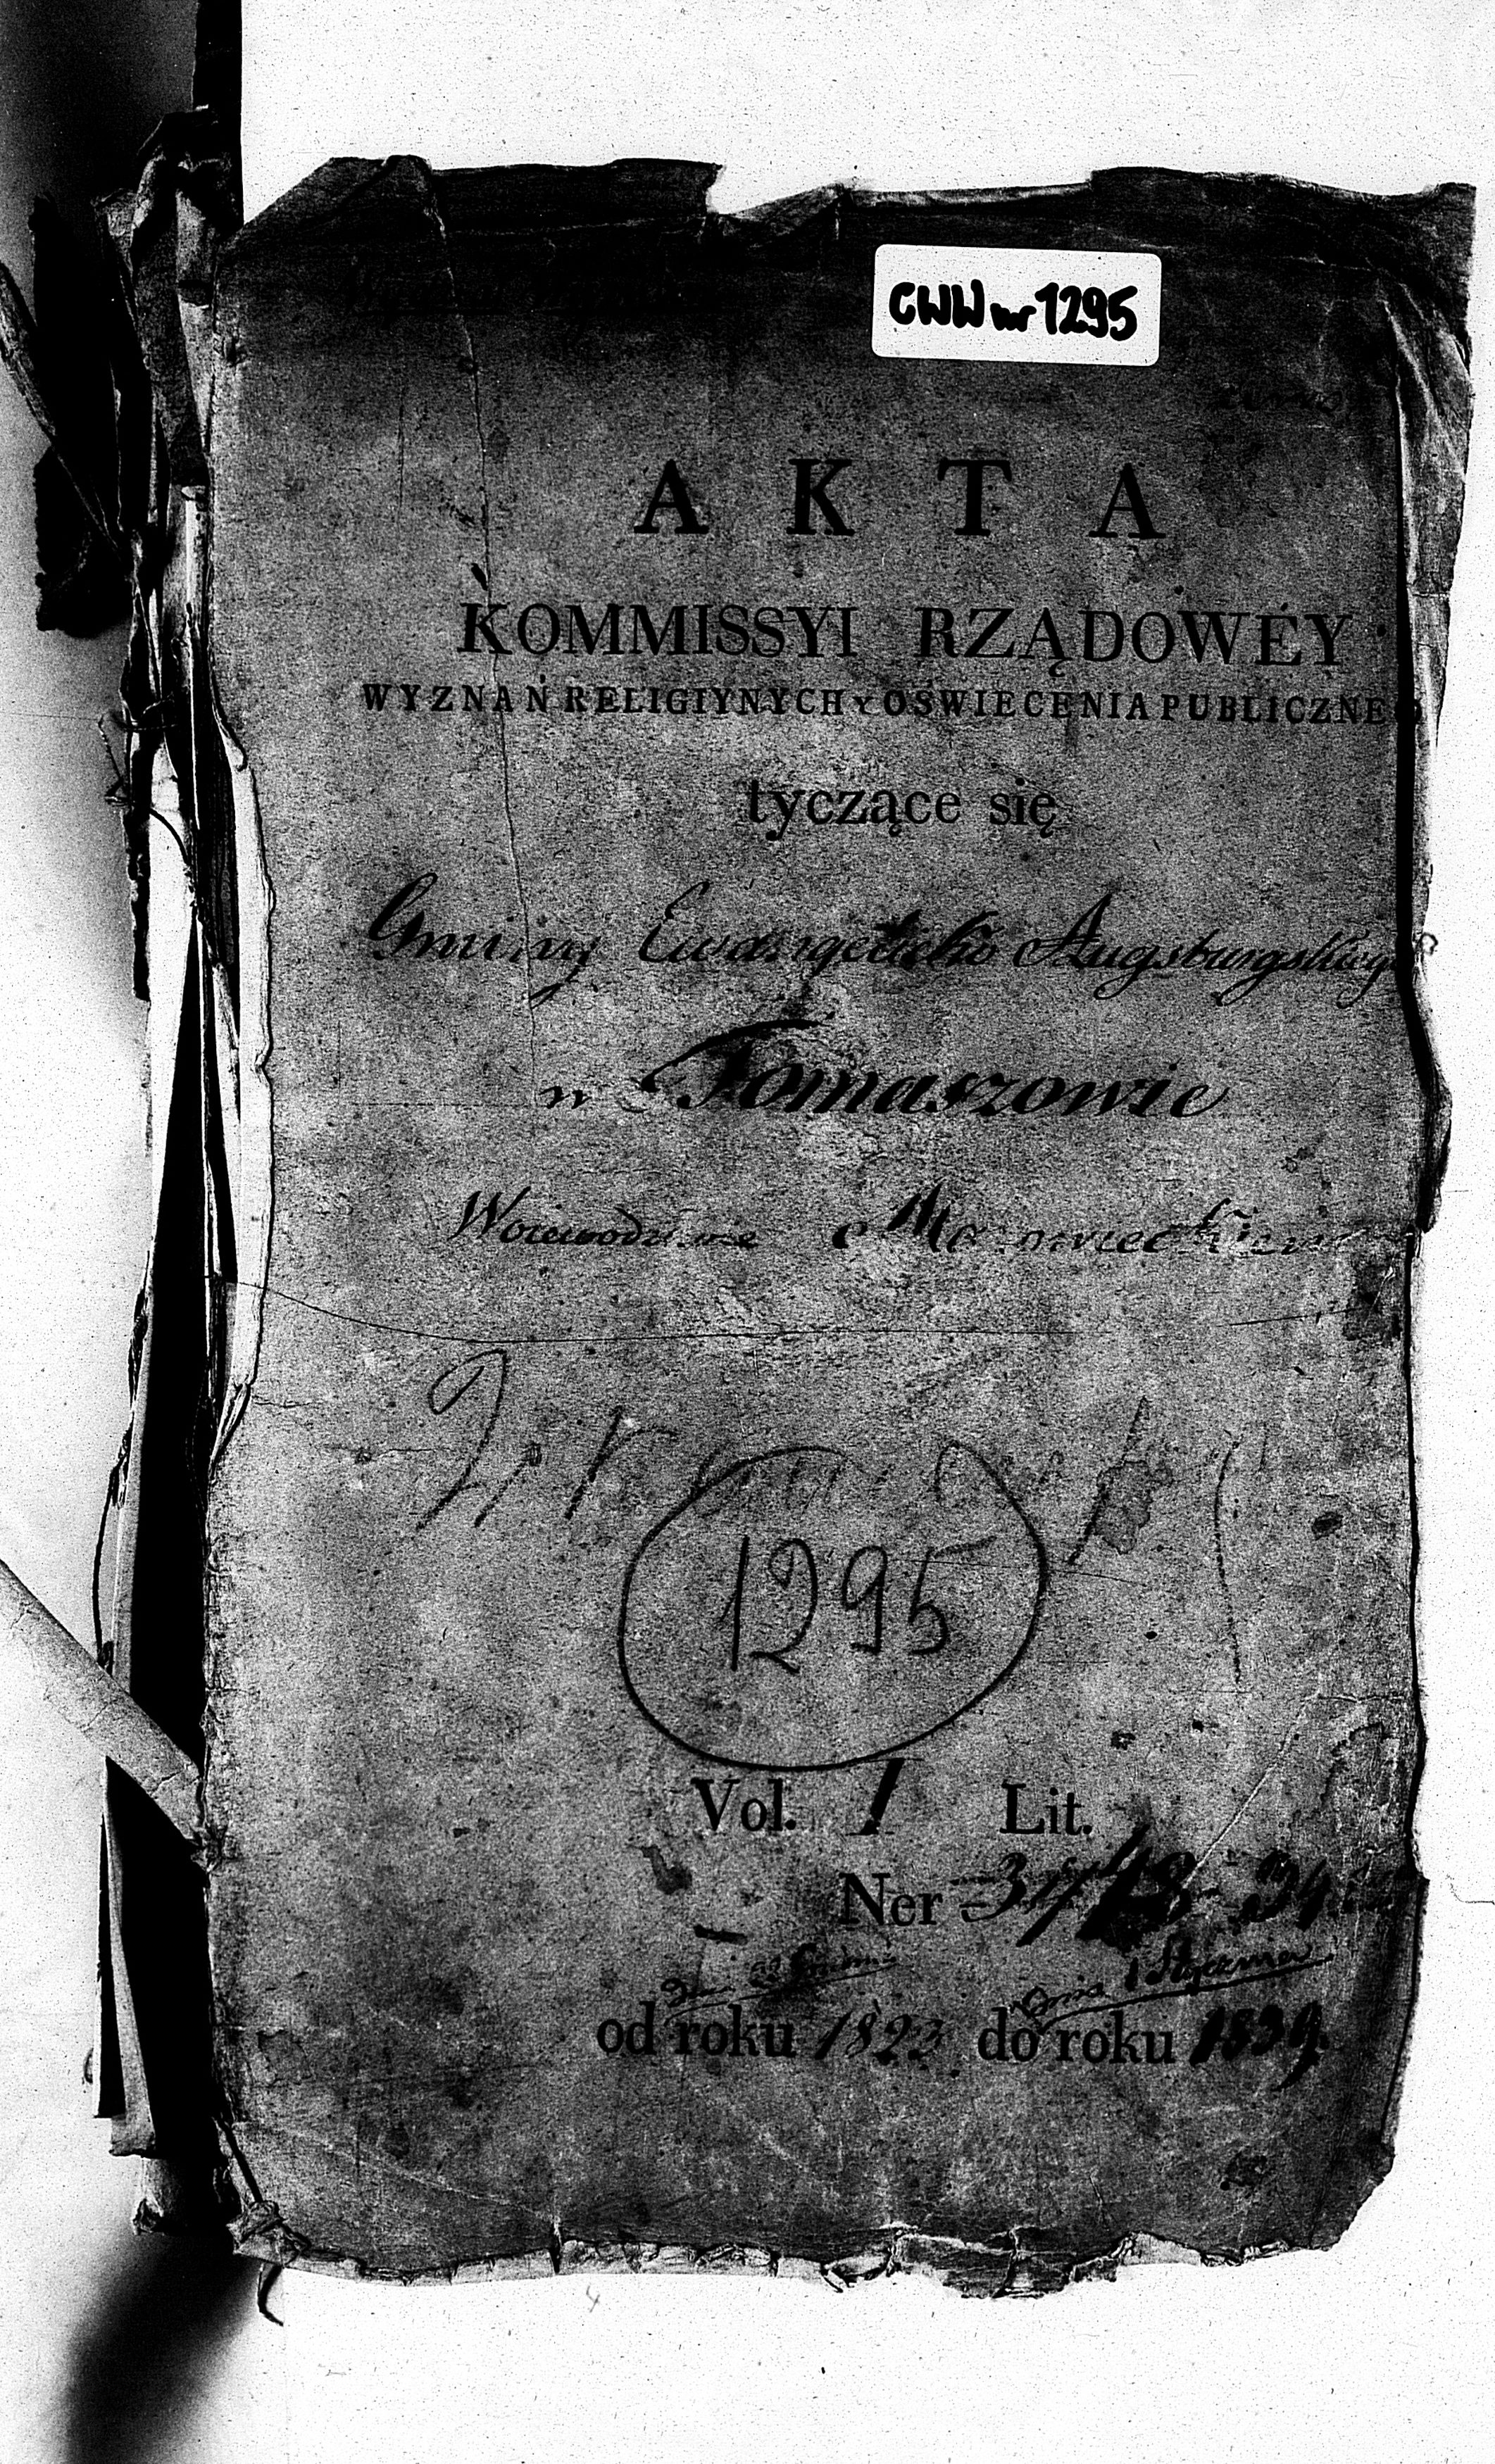 CWW nr 1295
AKTA
KOMMISSYI RZĄDOWÉY
WYZNAŃ RELIGIYNYCH Y OŚWIECENIA PUBLICZNE
tyczące się
Gminy Ewangelicko Augsburgskiey
w Tomaszowie
Woiewodztwie Mazowieckiem
1295
Vol. I Lit.
Ner
dnia 22 Grudnia dnia 1 Stycznia
od roku 1823 do roku 1839.